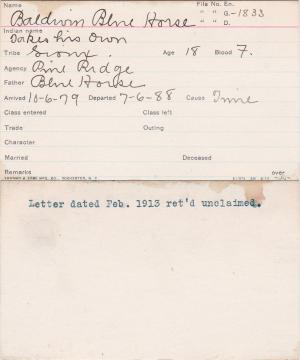 Name File No. En.
Baldwin Blue Horse " " G.-1833
Indian name " " D.
Takes his Own
Tribe Sioux. Age 18 Blood 7.
Agency Pine Ridge
Father Blue Horse
Arrived 10-6-79 Departed 7-6-88 Cause Time
Class entered Class left
Trade Outing
Character
Married Deceased
Remarks over
Letter dated Feb. 1913 ret'd unclaimed.